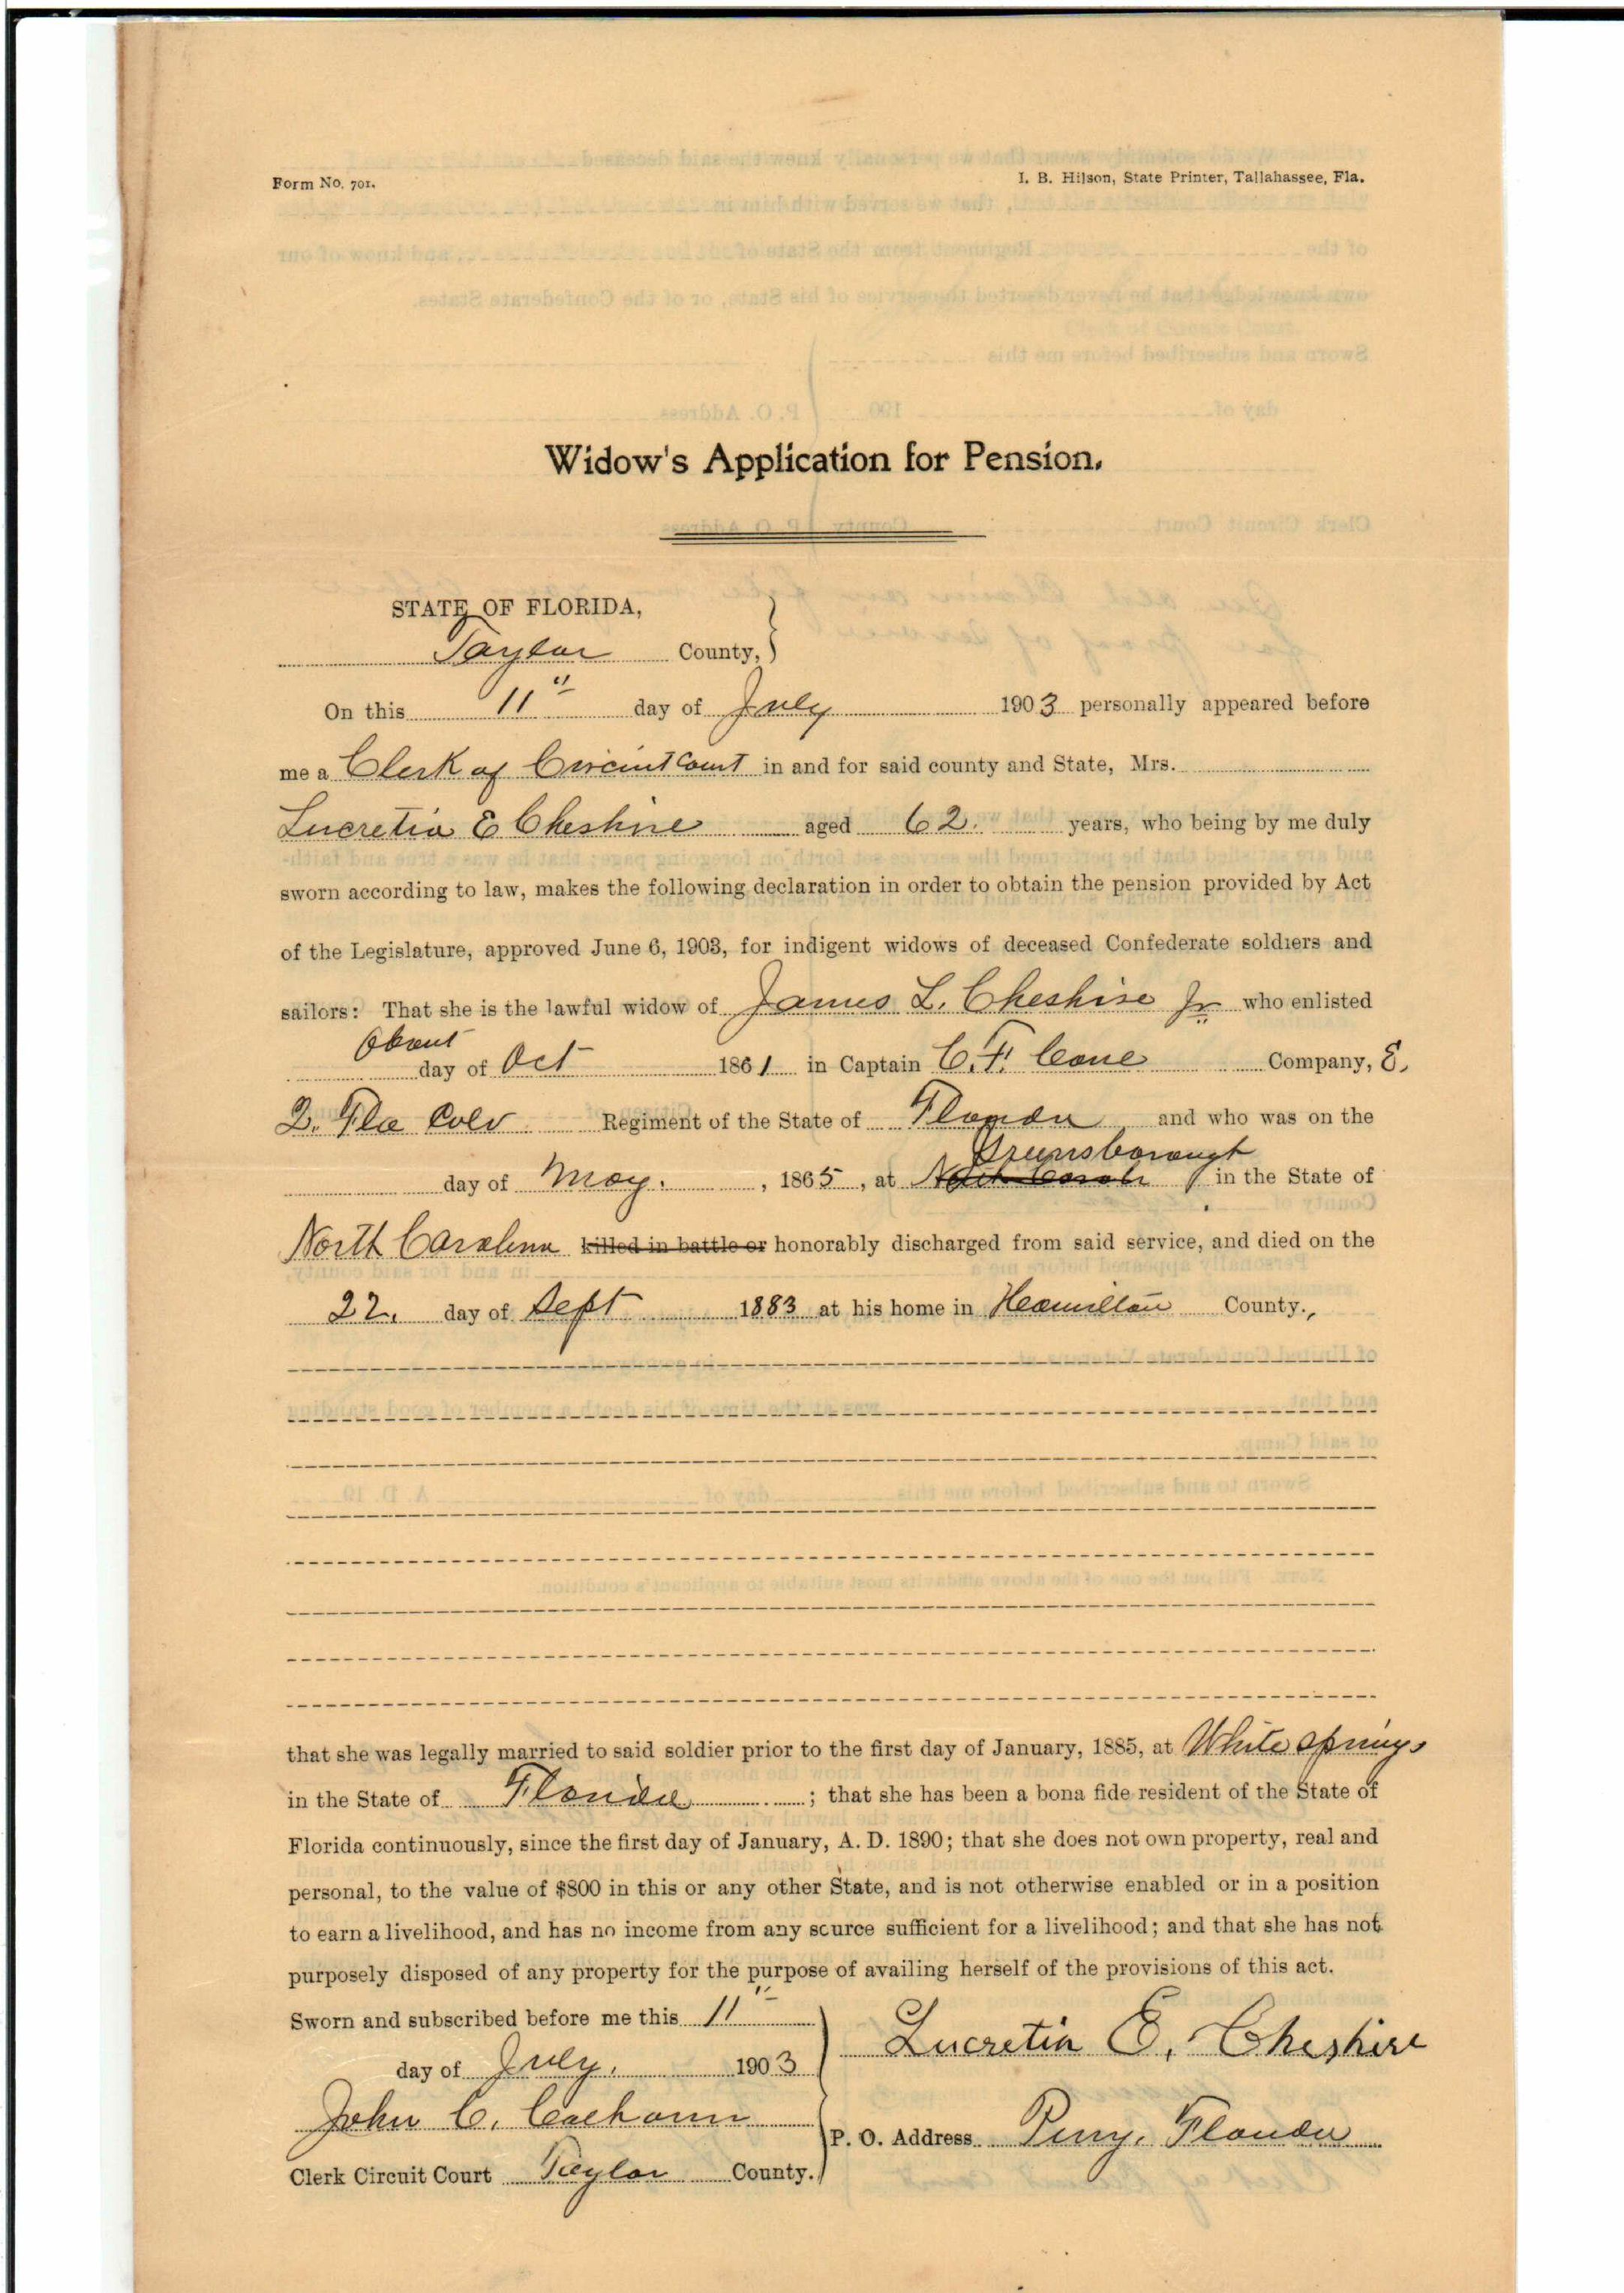 Form No. 701.
I. B. Hilson, State Printer, Tallahassee, Fla.
Widow's Application for Pension.
STATE OF FLORIDA,
Taylor County,
On this 11" day of July 1903 personally appeared before
me a Clerk of Circuit Court in and for said county and State, Mrs.
Lucretia E Cheshire aged 62. years, who being by me duly
sworn according to law, makes the following declaration in order to obtain the pension provided by Act
of the Legislature, approved June 6, 1903, for indigent widows of deceased Confederate soldiers and
sailors: That she is the lawful widow of James L. Cheshire Jr who enlisted
about
day of Oct 1861 in Captain C. F. Cone Company, E,
2. Fla Calv Regiment of the State of Florida and who was on the
Greensborough
day of May. , 1865, at North Caroli in the State of
North Carolina killed in battle or honorably discharged from said service, and died on the
22. day of Sept 1883 at his home in Hamilton County.,
that she was legally married to said soldier prior to the first day of January, 1885, at White Springs
in the State of Florida ; that she has been a bona fide resident of the State of
Florida continuously, since the first day of January, A. D. 1890; that she does not own property, real and
personal, to the value of $800 in this or any other State, and is not otherwise enabled or in a position
to earn a livelihood, and has no income from any source sufficient for a livelihood; and that she has not
purposely disposed of any property for the purpose of availing herself of the provisions of this act.
Sworn and subscribed before me this 11"
day of July. 1903
Lucretia E. Cheshire
John C. Calhoun
P. O. Address Perry, Florida
Clerk Circuit Court Taylor County.